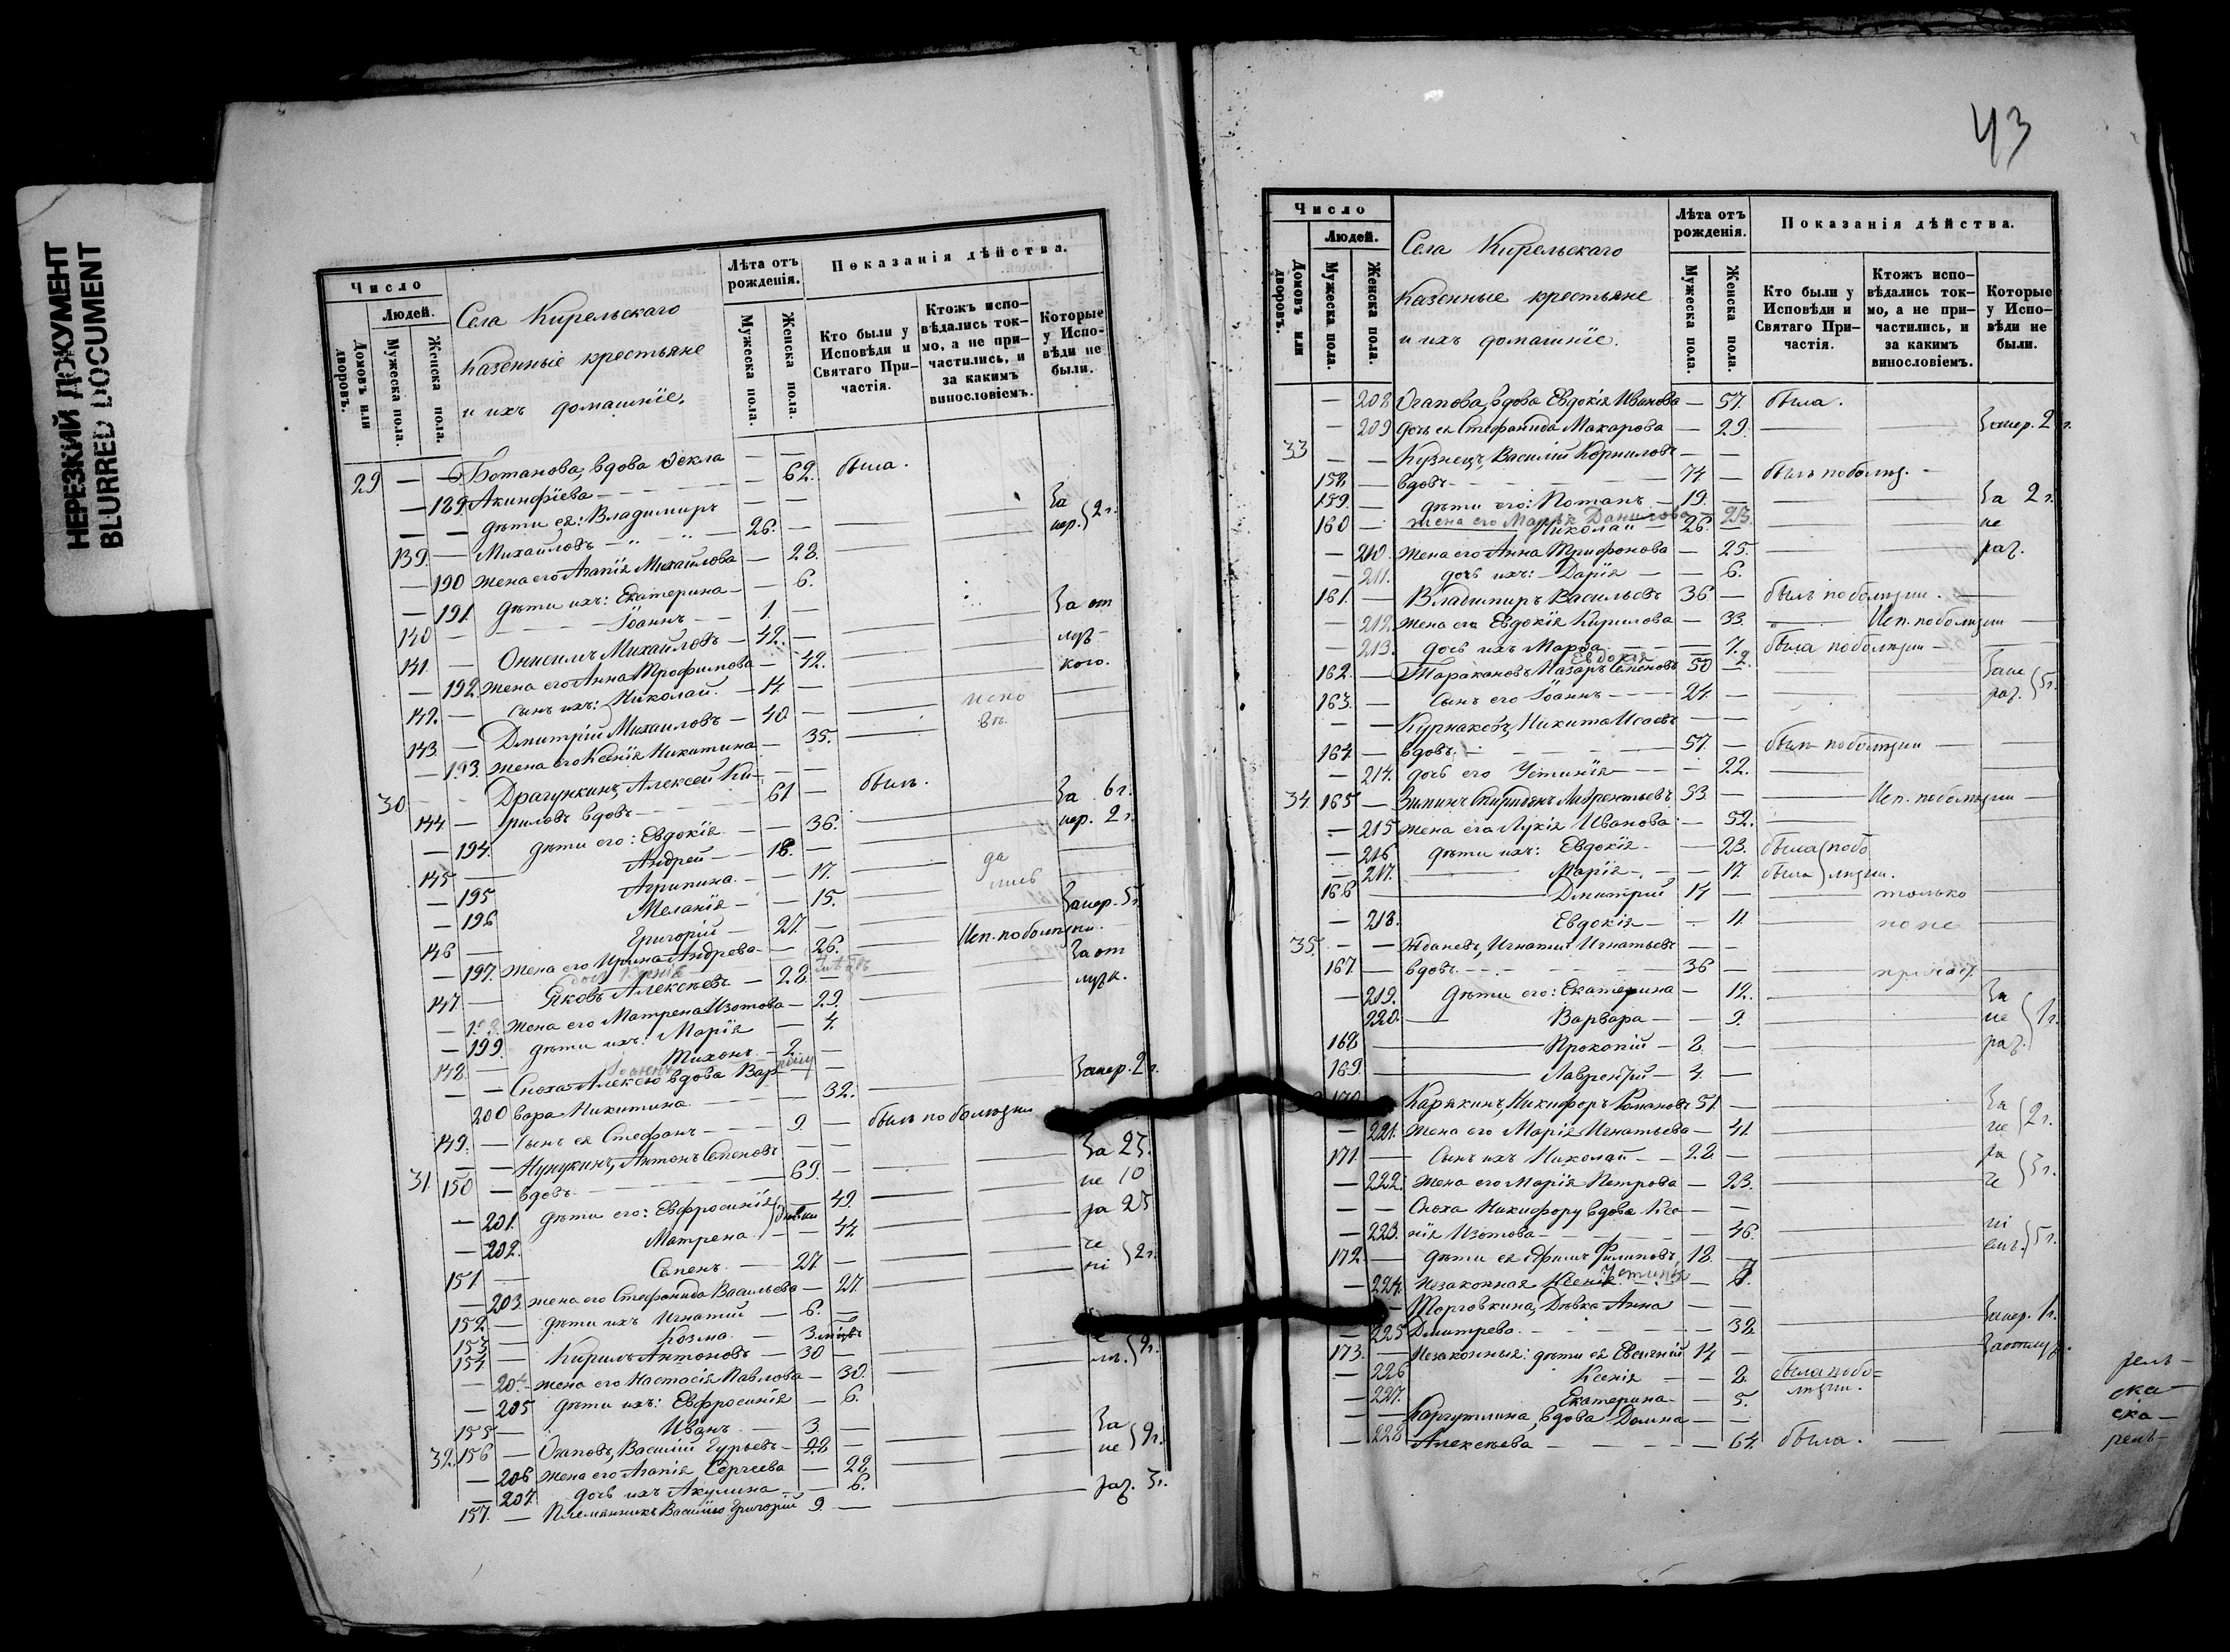 НЕРЕЗКИЙ ДОКУМЕНТ
BLURRED DOCUMENT
Число
Людей.
Домовъ или дворовъ.
Мужеска пола.
Женска пола.
Села Кирельскаго
Казенные крестьяне
и ихъ домашніе.
Лѣта отъ рожденія.
Мужеска пола.
Женска пола.
Показанія дѣйства.
Кто были у Исповѣди и Святаго Причастія.
Ктожъ исповѣдались токмо, а не причастились, и за какимъ винословіемъ.
Которые у Исповѣди не были.
29 — — Ботанова, вдова Ѳекла — —
— 189. Акинфіева — 62. была.
— — дѣти ея: Владимиръ — —
139. — Михайловъ 26. — За нер. 2 г.
— 190 жена его Агапія Михайлова — 28.
— 191. дѣти ихъ: Екатерина — 6.
140 — Іоаннъ 1. —
141. — Онисимъ Михайловъ — 42. — За от
— 192. жена его Анна Трофимова — 42. луч
142. — сынъ ихъ: Николай. — 14. — кою.
143. — Дмитрій Михаиловъ — 40. — испо
— 193. жена его Ксенія Никитина — 35. вѣ
30 — — Драгункинъ, Алексей Ки- — —
144. — риловъ вдовъ 61 — былъ.
— 194. дѣти его: Евдокія — 36. За 6 г.
145 — Андрей — 18. — нер. 2 г.
— 195 Агрипина. — 17. да
— 196 Меланія — 15. лись
146 — Григорій — 27. — За нер. 5 г.
— 197. жена его Ирина Андрева — 26. Исп. по болѣзни.
147 — Яковъ Алексѣевъ — 28. За от
— 198. жена его Матрена Изотова — 29. лук.
— 199. дѣти ихъ: Марія — 4.
148. — Тихонъ — 2. —
— — Сноха Алексею вдова Вар- — —
200 вара Никитина — 32. За нер. 2 г.
149. — Сынъ ея Стефанъ 9. — былъ по болѣзни
— — Нунукинъ, Антонъ Семеновъ — —
31. 150 — вдовъ 69. — За 25.
— 201. дѣти его: Евфросинія — 49. не 10
— 202. Матрена. дѣвки — 44. ра 25
151 — Семенъ. — 27. — че
— 203. жена его Стефанида Васильева — 27. ні 2 г.
152. — дѣти ихъ Игнатій — 6. —
153 — Козма — 3 мѣсяц.
154 — Кирилъ Антоновъ — 30 —
— 204. жена его Настасія Павлова — 30.
— 205 дѣти ихъ: Евфросинія — 6.
155 — Иванъ — 3. —
32. 156 — Осаповъ, Василій Гурьевъ — 28 — За
— 206 жена его Агапія Сергеева — 28. не 9 г.
— 207. дочь ихъ Акулина — 6.
157. — Племянникъ Василію Григорій 9. — раз. 3 г.
43
Число
Людей.
Домовъ или дворовъ.
Мужеска пола.
Женска пола.
Села Кирельскаго
Казенные крестьяне
и ихъ домашніе.
Лѣта отъ рожденія.
Мужеска пола.
Женска пола.
Показанія дѣйства.
Кто были у Исповѣди и Святаго Причастія.
Ктожъ исповѣдались токмо, а не причастились, и за какимъ винословіемъ.
Которые у Исповѣди не были.
— 208 Осапова, вдова Евдокія Иванова — 57. была.
— 209 дочь ея Стефанида Макарова — 29. За нер. 2 г.
33 — — Кузнецъ, Василій Корниловъ — —
158. — вдовъ 74 — былъ по болѣз. —
159. — дѣти его: Потапъ — 19. — За 2 г.
жена его Марья Данилова — 23.
160 — Николай — 26. — не
— 210. жена его Анна Трифонова — 25. раз.
— 211. дочь ихъ: Дарія — 6.
161. — Владимиръ Васильевъ 36 — былъ по болѣзни.
— 212. жена его Евдокія Кирилова — 33. Исп. по болѣзни
— 213. дочь ихъ Марѳа — 7. была по болѣзни
Евдокія 2.
162. — Таракановъ Назаръ Семеновъ 50 — За не
163. — Сынъ его Іоаннъ 24. — раз. 5 г.
— — Курнаковъ, Никита Исаевъ — —
164. — вдовъ. 57. — былъ по болѣзни
— 214. дочь его Устинія — 22.
34. 165 — Зыкинъ Спиридонъ Лаврентьевъ 53. — Исп. по болѣзни
— 215 жена его Лукія Иванова — 52.
— 216 дѣти ихъ: Евдокія — 23. была по бо
— 217. Марія — 17 была лѣзни.
166 Дмитрій 14 — только
— 218. Евдокія — 11 но не
35. — — Ждановъ, Игнатій Игнатьевъ — —
167. — вдовъ 36 — причас.
— 219. дѣти его: Екатерина — 12. За
220. Варвара — 9. не 1 г.
168 — Прокопій — 8. — раз.
169. — Лаврентій — 4. —
170 Карякинъ, Никифоръ Романовъ 51. — За
— 221. жена его Марія Игнатьева — 41. не 2 г.
171 — Сынъ ихъ Николай — 22 — ра
— 222. жена его Марія Петрова — 23. че 3 г.
— — Сноха Никифору вдова Ксе- — —
— 223. нія Изотова — 46. ні
172. — дѣти ея: Ефимъ Филиповъ 18. — емъ. 5 г.
— 224. незаконная Ксенія Устинія
— Торговкина, Дѣвка Анна — —
— 225 Дмитрева. — 38 За нер. 1 г.
173. — Незаконныя: дѣти ея Евгеній 14 — За отлуч.
— 226 Ксенія — 8. была по бо-
— 227. Екатерина — 5. лѣзни.
— — Каргузлина, вдова Домна — —
— 228 Алексѣева — 64 была.
рель-
ска-
ска-
рель-